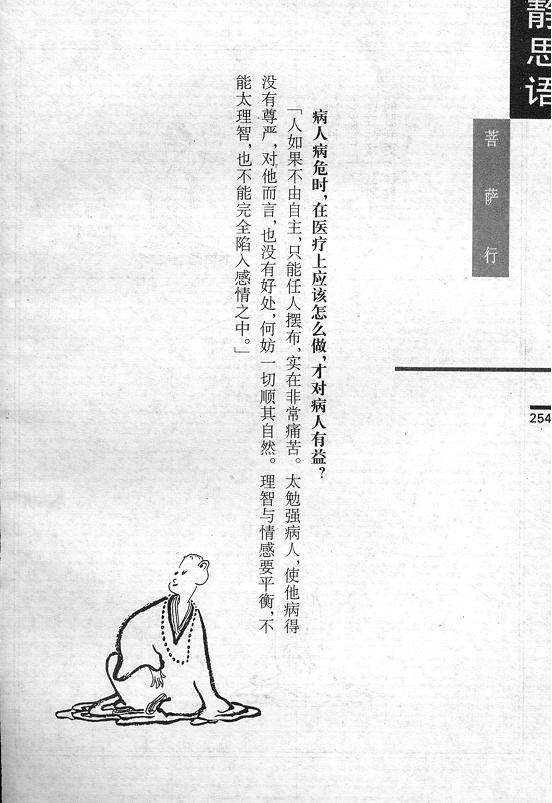 静思语
菩萨行
254
病人病危时，在医疗上应该怎么做，才对病人有益？
「人如果不由自主，只能任人摆布，实在非常痛苦。太勉强病人，使他病得
没有尊严，对他而言，也没有好处，何妨一切顺其自然。理智与情感要平衡，不
能太理智，也不能完全陷入感情之中。」